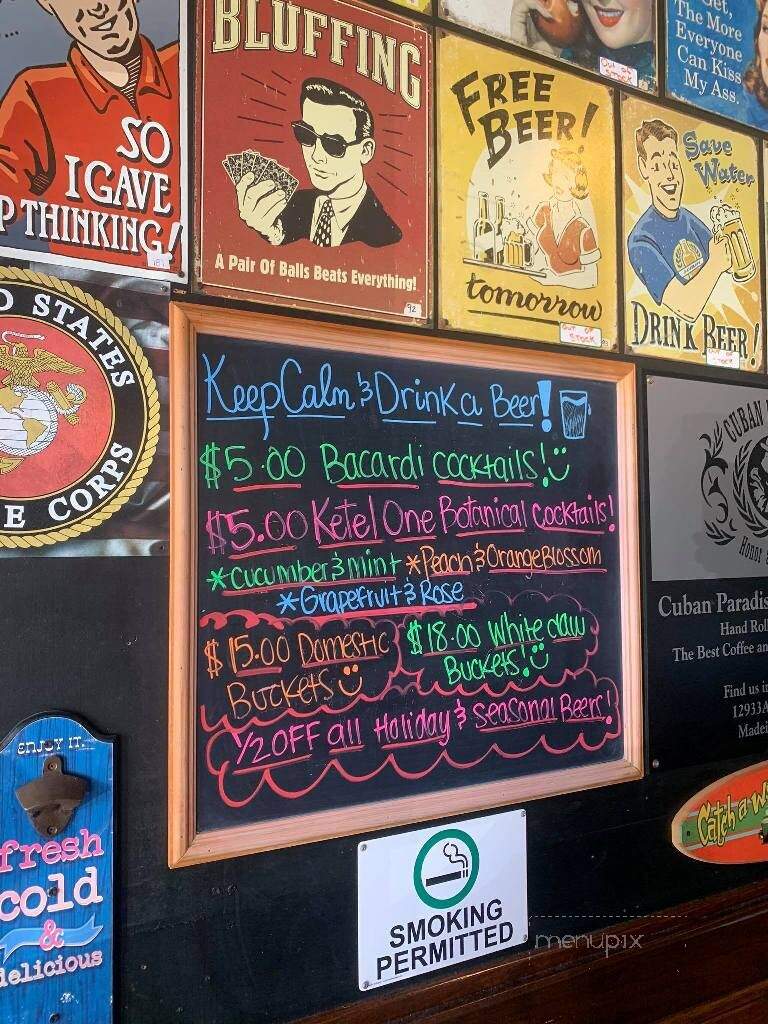 SO
I GAVE
P THINKING!
BLUFFING
A Pair Of Balls Beats Everything!
92
FREE
BEER!
tomorrow
OUT OF
STOCK
OUT OF
STOCK
Get,
The More
Everyone
Can Kiss
My Ass.
Save
Water
DRINK BEER!
D STATES
E CORPS
Keep Calm & Drink a Beer!
$5.00 Bacardi cocktails!
$5.00 Ketel One Botanical cocktails!
*cucumber & mint *Peach & Orange Blossom
*Grapefruit & Rose
$15.00 Domestic
Buckets
$18.00 White claw
Buckets!
1/2 OFF all Holiday & seasonal Beers!
CUBAN
Cuban Paradis
Hand Roll
The Best Coffee an
Find us in
12933A
Madei
ENJOY IT.
fresh
cold
&
delicious
Catch a w
SMOKING
PERMITTED
menupix